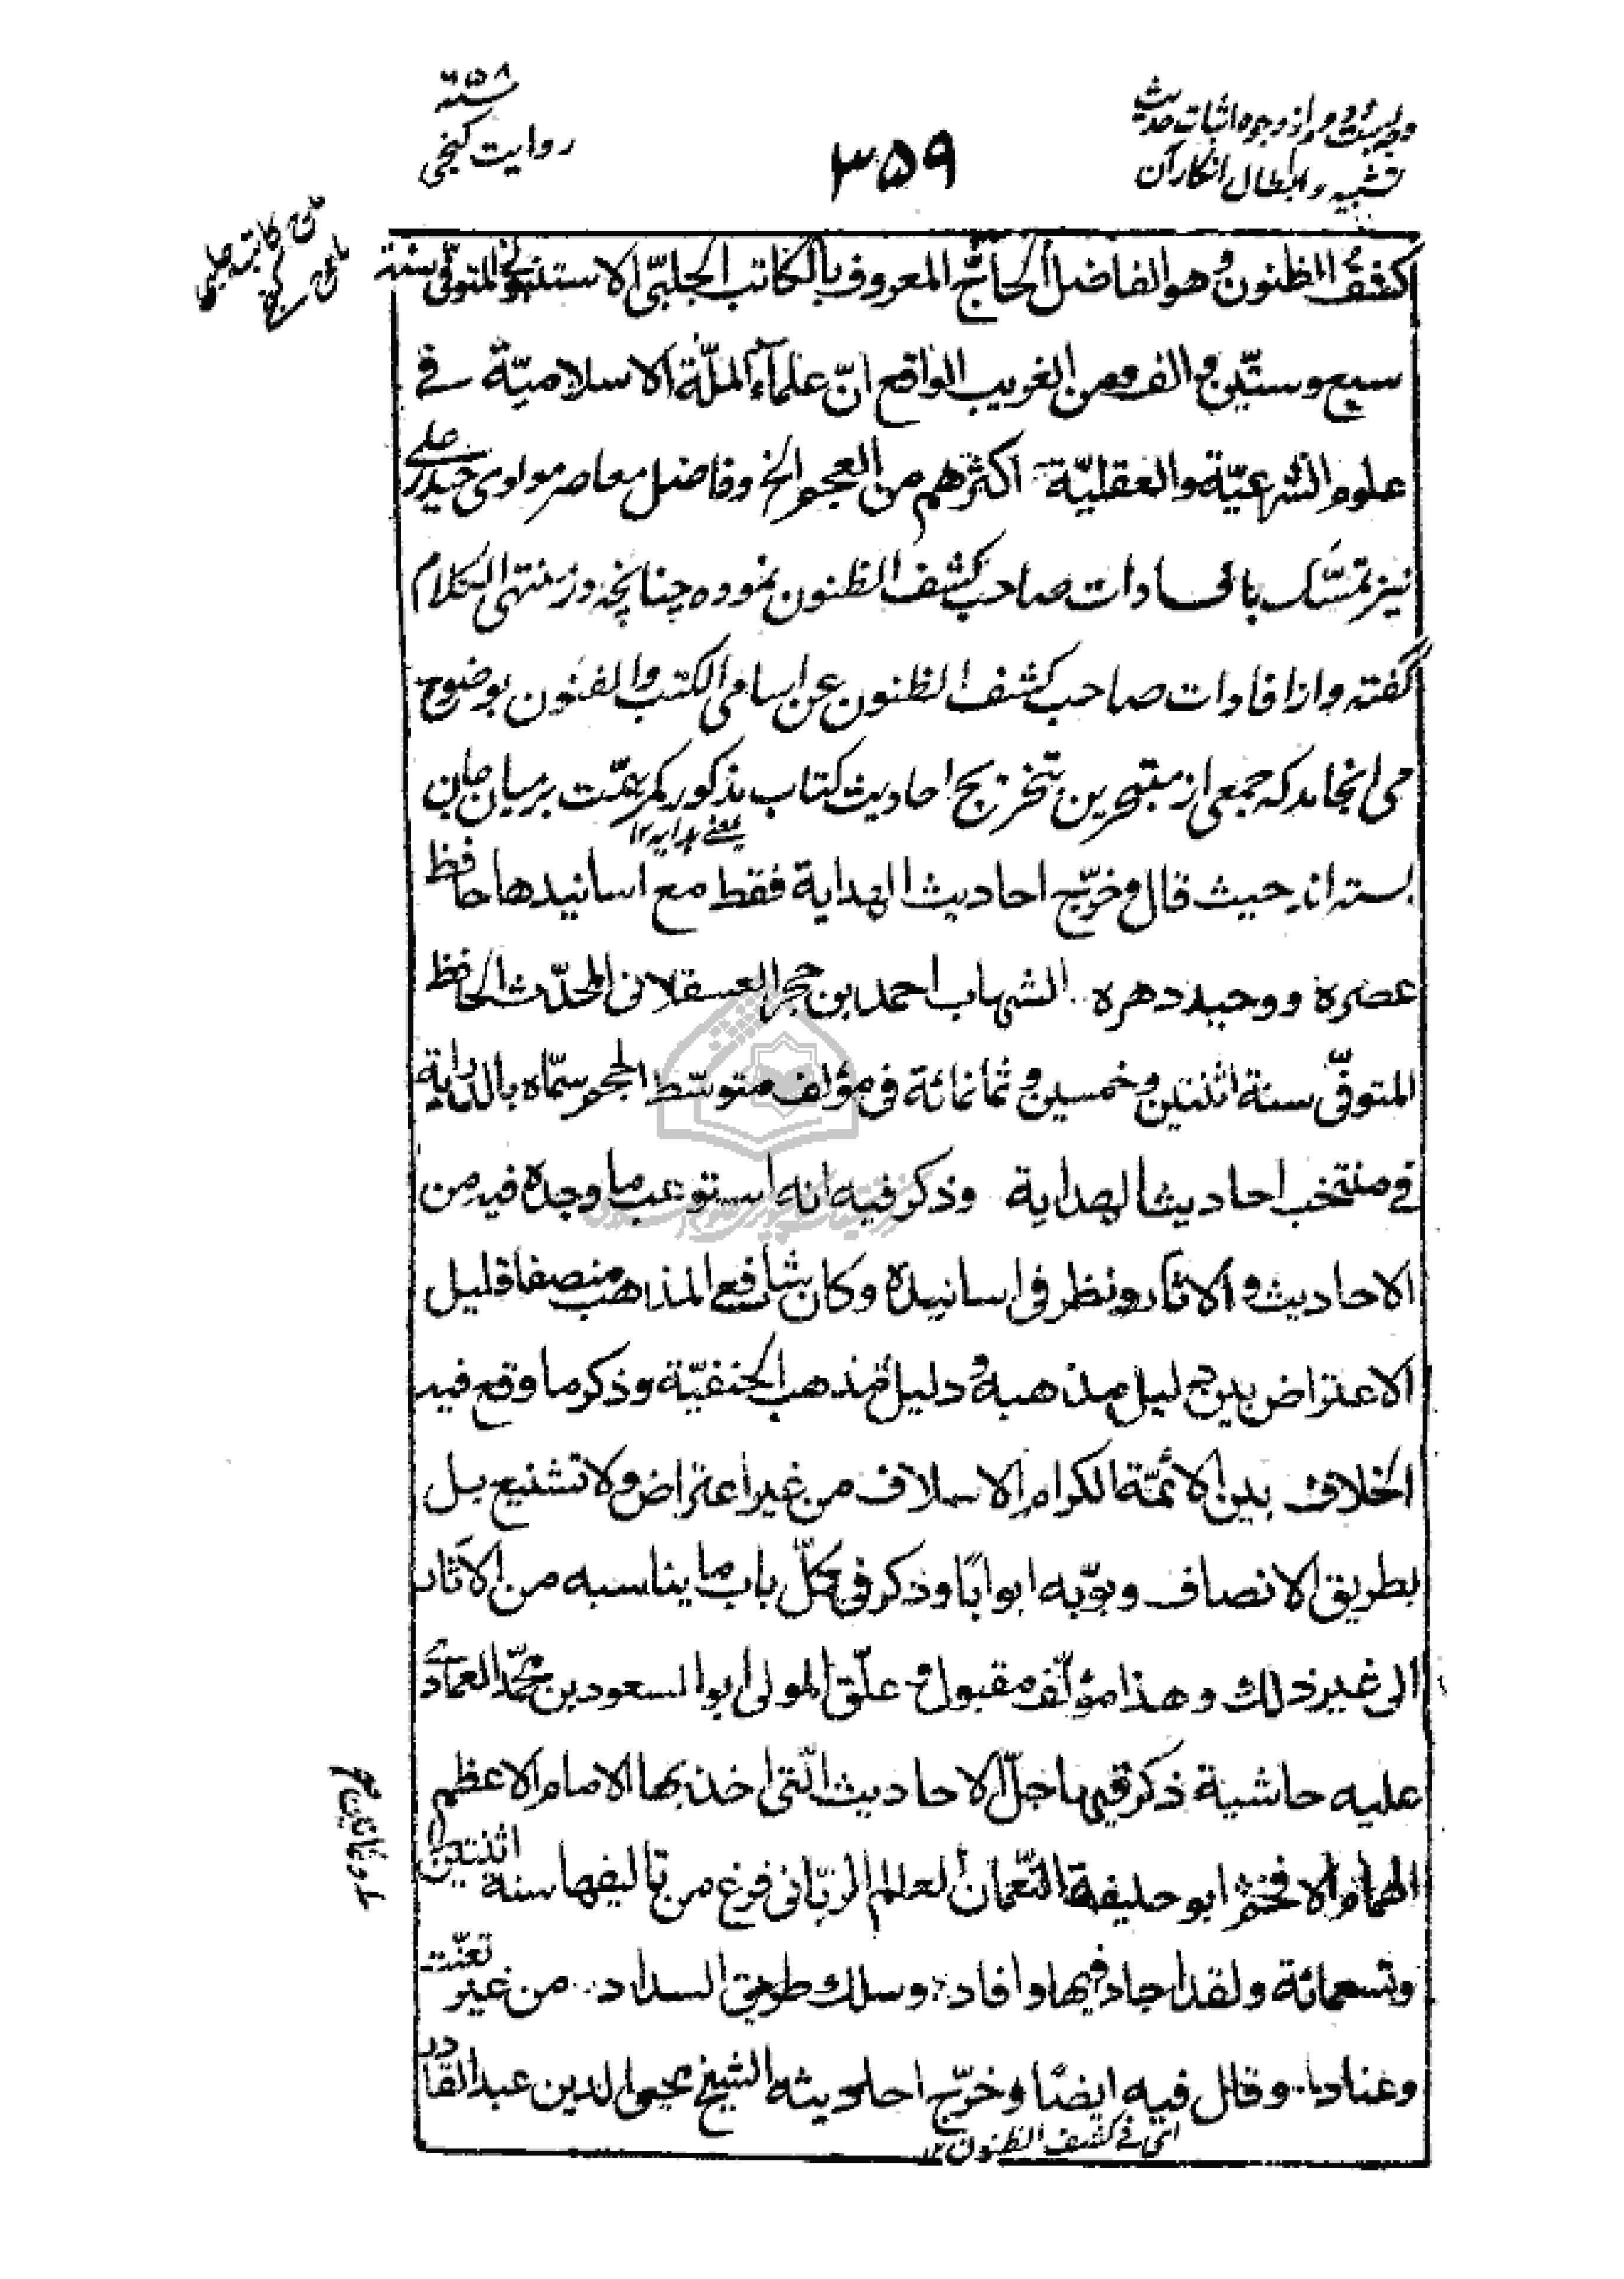 وجه بیست و دوم از وجوه اثبات حدیث
تشبیه و ابطال انکار آن
۳۵۹
سنه ۶۵۸
روایت کنجی
کشف الظنون وهو الفاضل الحاجّ المعروف بالکاتب الجلبّی الاستنبولی المتوفّی سنة
سبع وستّین والف ومن الغریب الواقع انّ علماء الملّة الاسلامیّة فی
علوم الشرعیّة والعقلیّة اکثرهم من العجم الخ وفاضل معاصر مولوی حیدر علی
نیز تمسّک بافادات صاحب کشف الظنون نموده چنانچه در منتهی الکلام
گفته و از افادات صاحب کشف الظنون عن اسامی الکتب والفنون بوضوح
می انجامد که جمعی از متبحرین بتخریج احادیث کتاب مذکور کمر همّت بر میان جان
یعنے هدایه ۱۲
بسته اند حیث قال وخرّج احادیث الهدایة فقط مع اسانیدها حافظ
عصره ووحید دهره الشهاب احمد بن حجر العسقلانی المحدّث الحافظ
المتوفّی سنة اثنتین وخمسین وثمانمائة فی مؤلف متوسّط الحجم سمّاه بالدرایة
فی منتخب احادیث الهدایة وذکر فیه انه استوعب ما وجده فیه من
الاحادیث والاثار ونظر فی اسانیده وکان شافعی المذهب منصفا قلیل
الاعتراض بین دلیل مذهبه ودلیل مذهب الحنفیّة وذکر ما وقع فیه
الخلاف بین الائمّة الکرام الاسلاف من غیر اعتراض ولا تشنیع بل
بطریق الانصاف وبوّبه ابوابًا وذکر فی کلّ باب ما یناسبه من الآثار
الی غیر ذلك وهذا مؤلّف مقبول وعلّق المولی ابو السعود بن محمّد العمادی
علیه حاشیة ذکر فیها جلّ الاحادیث الّتی اخذ بها الامام الاعظم
الهمام الافخم ابو حنیفة النّعمان العالم الربّانی فرغ من تالیفها سنة اثنتین
وتسعمائة ولقد اجاد فیها وافاد وسلك طریق السداد من غیر تعنّت
وعناد وقال فیه ایضًا وخرّج احادیثه الشیخ محیی الدین عبد القادر
ای فی کشف الظنون ۱۲